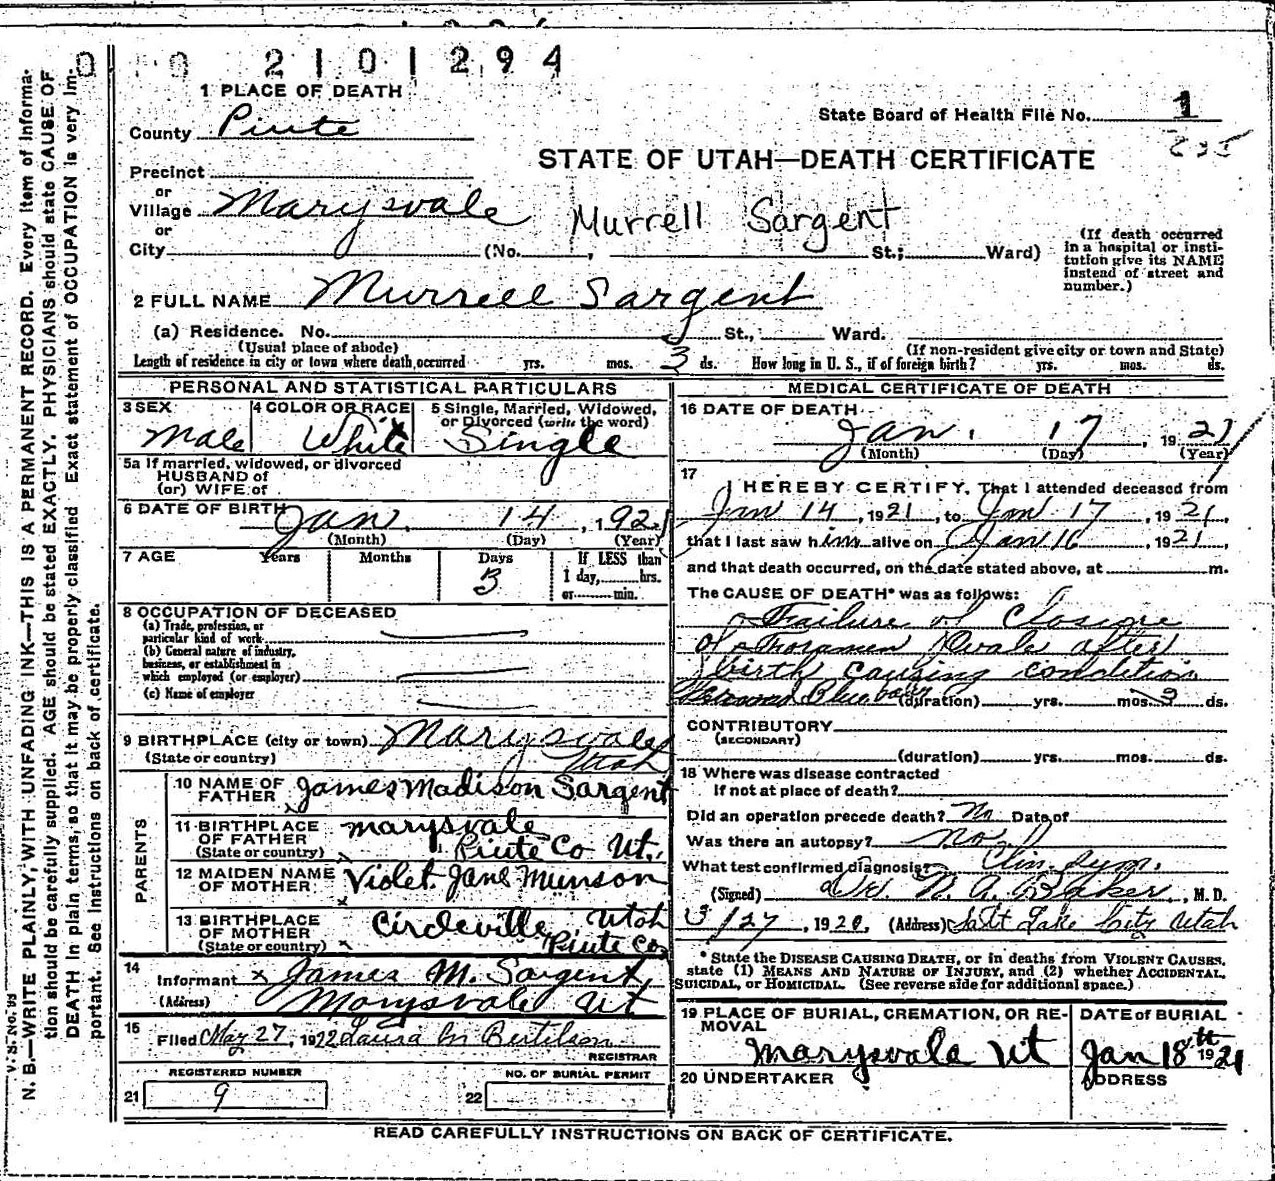 2101294
1 PLACE OF DEATH
County Piute
State Board of Health File No. 1
235
STATE OF UTAH—DEATH CERTIFICATE
Precinct
or
Village Marysvale
Murrell Sargent
or
City (No. , St.; Ward)
(If death occurred in a hospital or insti-
tution give its NAME
instead of street and
number.)
2 FULL NAME Murrell Sargent
(a) Residence. No. St., Ward.
(Usual place of abode) (If non-resident give city or town and State)
Length of residence in city or town where death occurred yrs. mos. 3 ds. How long in U. S., if of foreign birth? yrs. mos. ds.
PERSONAL AND STATISTICAL PARTICULARS
3 SEX 4 COLOR OR RACE 5 Single, Married, Widowed,
or Divorced (write the word)
Male White Single
5a If married, widowed, or divorced
HUSBAND of
(or) WIFE of
6 DATE OF BIRTH Jan. 14, 1921
(Month) (Day) (Year)
7 AGE Years Months Days If LESS than
3 1 day, hrs.
or min.
8 OCCUPATION OF DECEASED
(a) Trade, profession, or
particular kind of work
(b) General nature of industry,
business, or establishment in
which employed (or employer)
(c) Name of employer
9 BIRTHPLACE (city or town) Marysvale
(State or country) Utah
PARENTS
10 NAME OF
FATHER James Madison Sargent
11 BIRTHPLACE
OF FATHER
(State or country) marysvale
Piute Co Ut.
12 MAIDEN NAME
OF MOTHER Violet Jane Munson
13 BIRTHPLACE
OF MOTHER
(State or country) Circleville Utah
Piute Co
14
Informant x James M. Sargent
(Address) Marysvale Ut
15
Filed May 27, 1922 Laura M Bertelson
REGISTRAR
REGISTERED NUMBER NO. OF BURIAL PERMIT
21 9 22
MEDICAL CERTIFICATE OF DEATH
16 DATE OF DEATH
Jan. 17, 1921
(Month) (Day) (Year)
17
I HEREBY CERTIFY, That I attended deceased from
Jan 14, 1921, to Jan 17, 1921,
that I last saw him alive on Jan 16, 1921,
and that death occurred, on the date stated above, at m.
The CAUSE OF DEATH* was as follows:
Failure of Closure
of Foramen Ovale after
birth causing condition
Blue baby (duration) yrs. mos. 3 ds.
CONTRIBUTORY
(SECONDARY)
(duration) yrs. mos. ds.
18 Where was disease contracted
if not at place of death?
Did an operation precede death? No Date of
Was there an autopsy? No
What test confirmed diagnosis? Clin. Sym.
(Signed) Dr. N. A. Baker, M. D.
3/27, 1920, (Address) Salt Lake City Utah
* State the DISEASE CAUSING DEATH, or in deaths from VIOLENT CAUSES,
state (1) MEANS AND NATURE OF INJURY, and (2) whether ACCIDENTAL,
SUICIDAL, or HOMICIDAL. (See reverse side for additional space.)
19 PLACE OF BURIAL, CREMATION, OR RE-
MOVAL
Marysvale Ut
DATE of BURIAL
Jan 18th 1921
20 UNDERTAKER
ADDRESS
READ CAREFULLY INSTRUCTIONS ON BACK OF CERTIFICATE.
V. S. No. 99
N. B.—WRITE PLAINLY, WITH UNFADING INK—THIS IS A PERMANENT RECORD. Every item of informa-
tion should be carefully supplied. AGE should be stated EXACTLY. PHYSICIANS should state CAUSE OF
DEATH in plain terms, so that it may be properly classified. Exact statement of OCCUPATION is very im-
portant. See instructions on back of certificate.